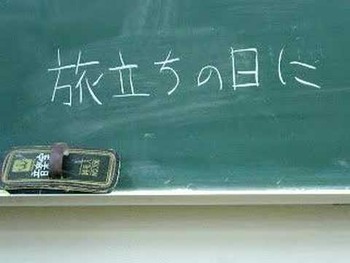 旅立ちの日に